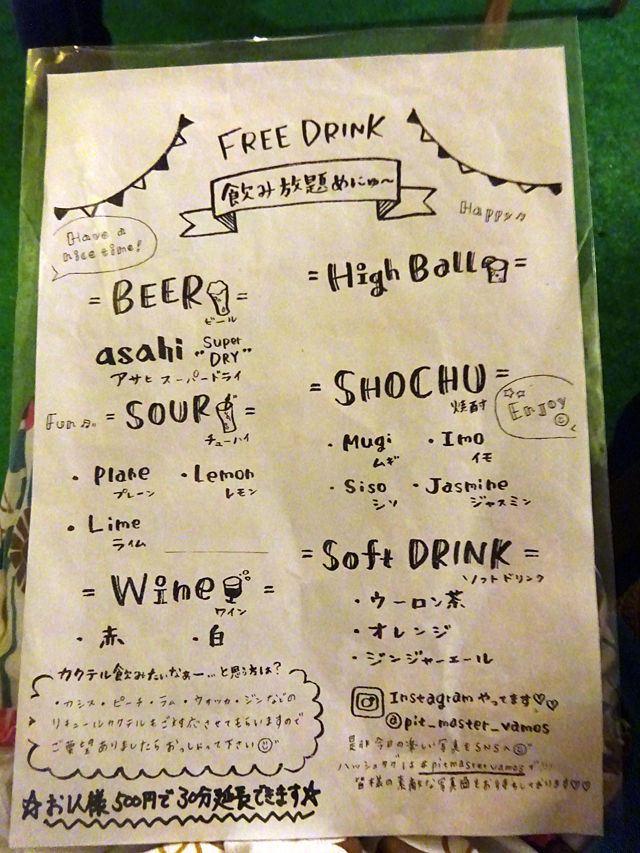 FREE DRINK
飲み放題めにゅ〜
Have a
nice time!
Happy♪
= BEER =
ビール
asahi "Super DRY"
アサヒ スーパードライ
Fun♫
= SOUR =
チューハイ
・Plane
プレーン
・Lemon
レモン
・Lime
ライム
= Wine =
ワイン
・赤 ・白
カクテル飲みたいなぁー…と思う方は?
・カシス・ピーチ・ラム・ウォッカ・ジンなどの
リキュールカクテルもご対応させてもらいますので
ご要望ありましたらおっしゃって下さい
☆お1人様500円で30分延長できます☆
= High Ball =
= SHOCHU =
焼酎
☆☆
Enjoy
・Mugi
ムギ
・Imo
イモ
・Siso
シソ
・Jasmine
ジャスミン
= Soft DRINK =
ソフトドリンク
・ウーロン茶
・オレンジ
・ジンジャーエール
Instagram やってます♡♡
@pit_master_vamos
是非今日の楽しい写真をSNSへ
ハッシュタグは #pitmastervamos で!!!
皆様の素敵な写真をお待ちしております♡♡